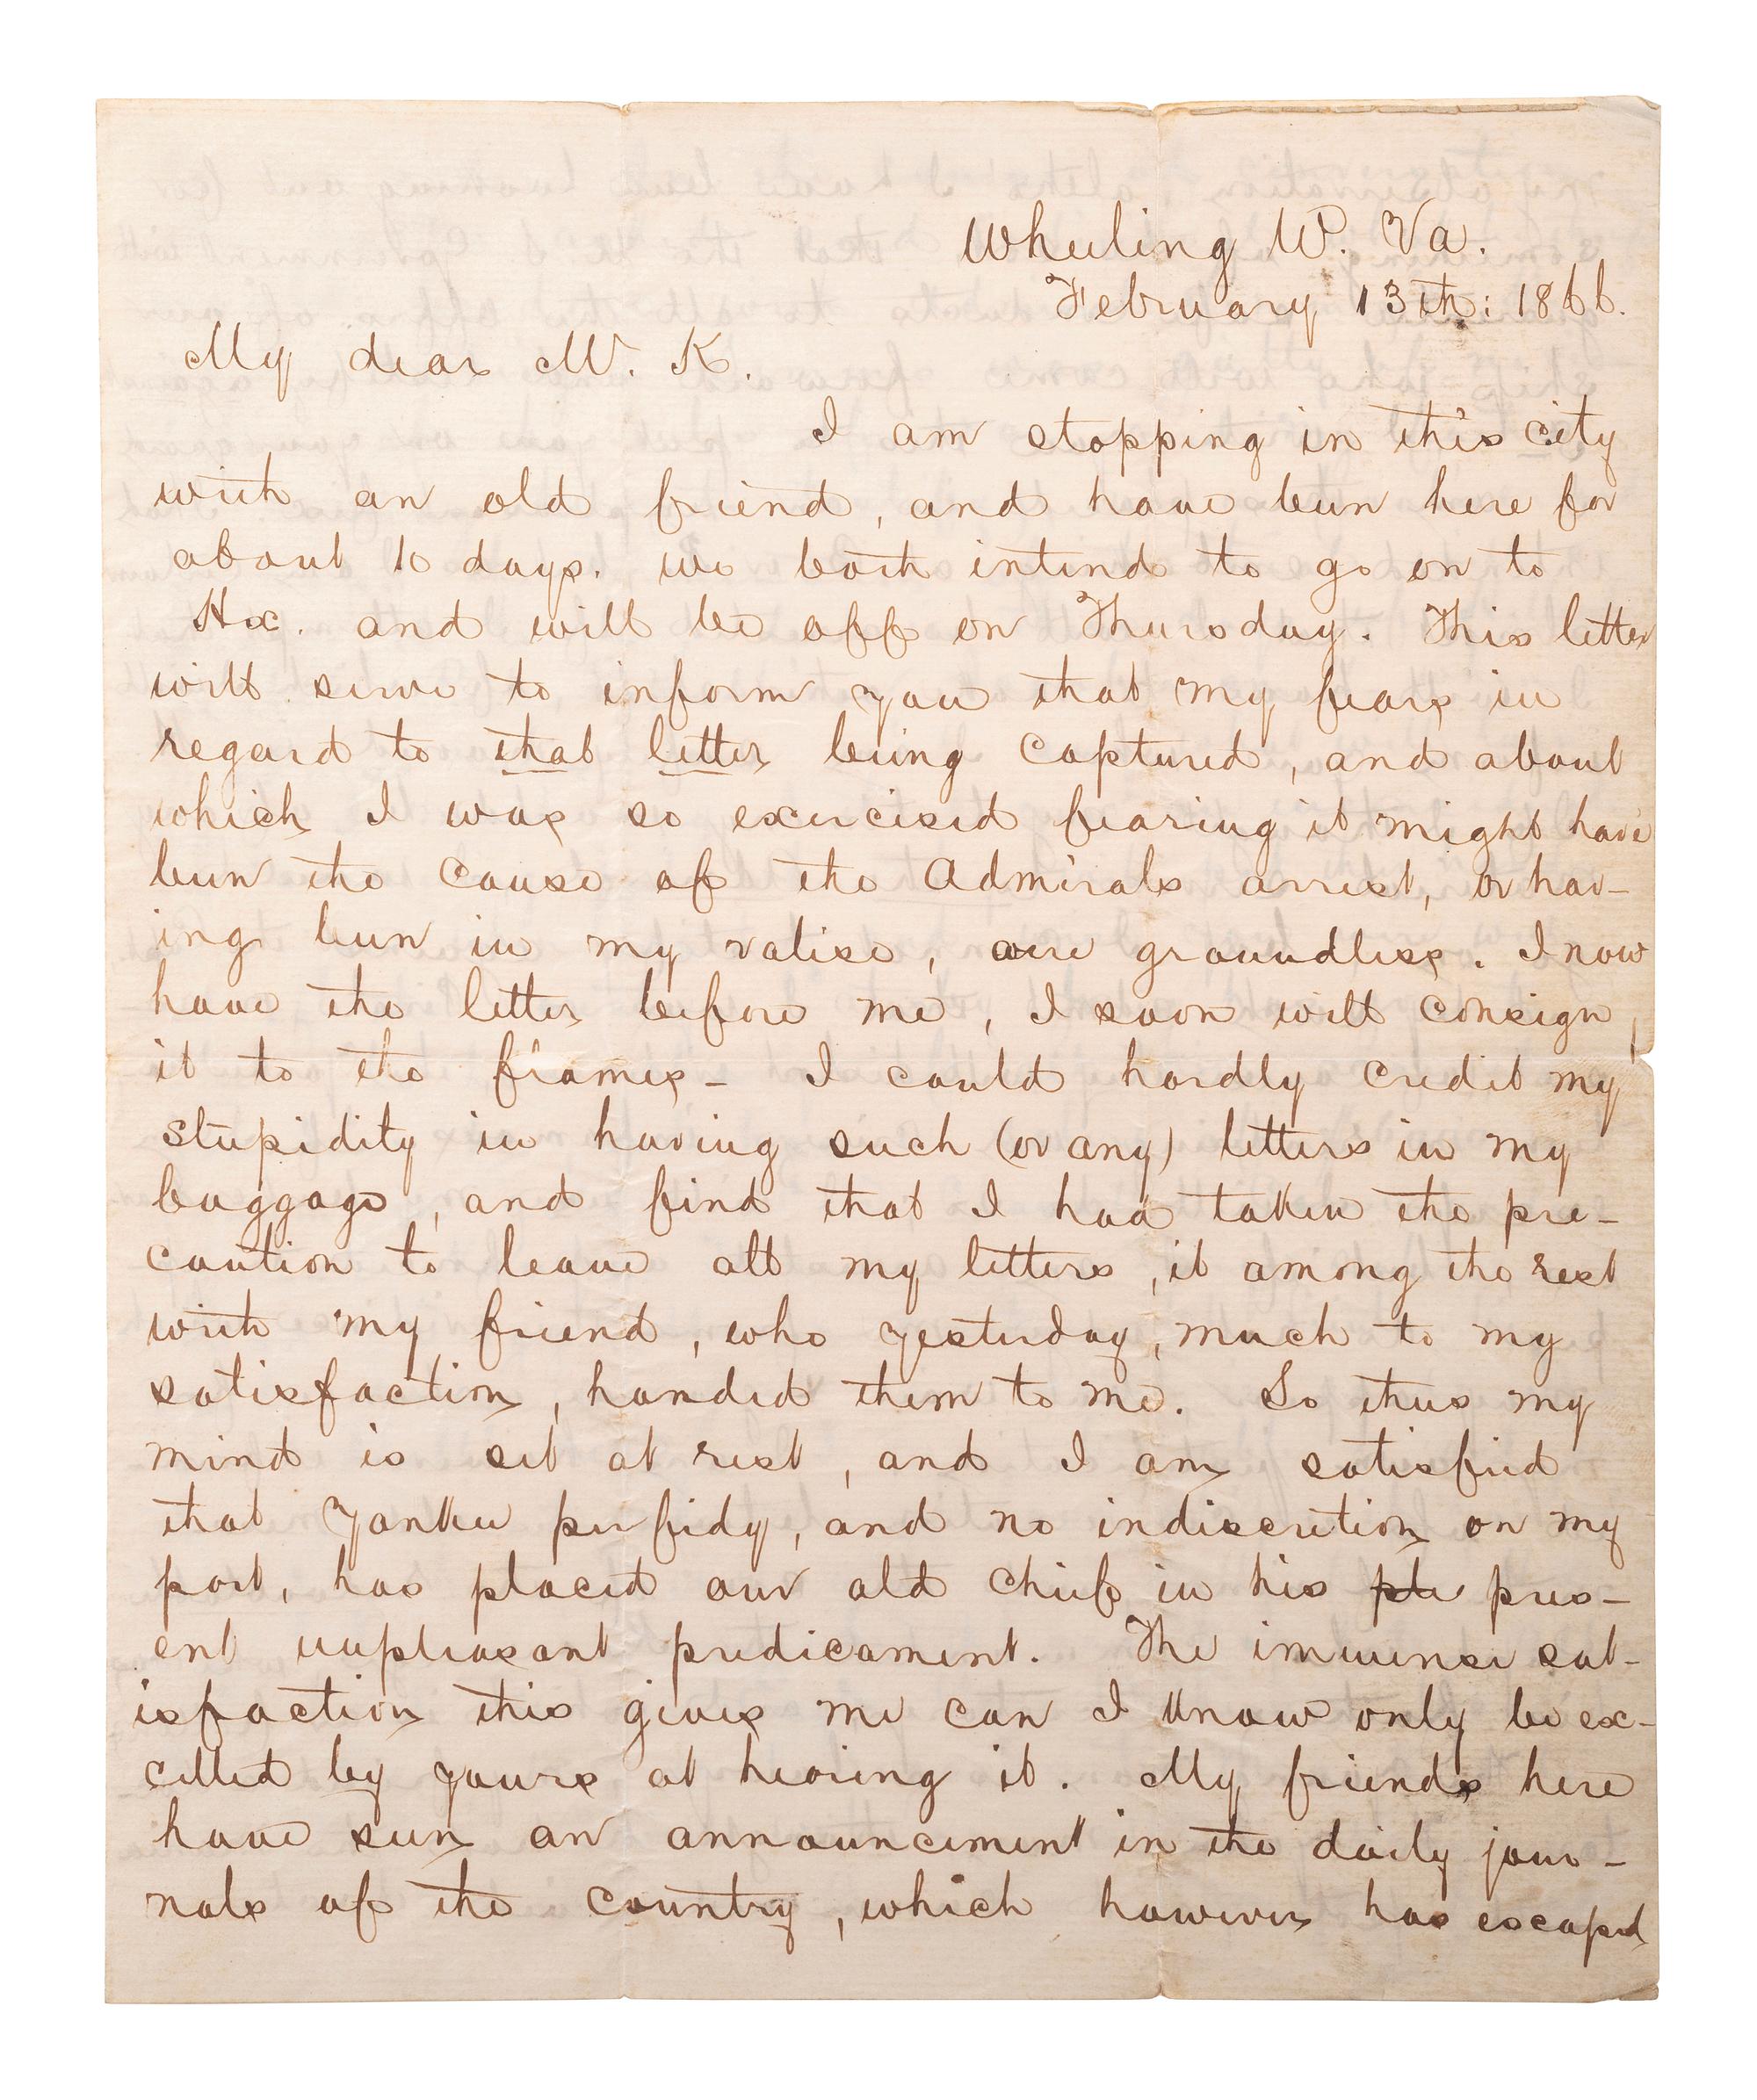 Wheeling W. Va.
February 13th: 1866.
My dear M. K.
I am stopping in this city
with an old friend, and have been here for
about 10 days. we both intend to go on to
Hx. and will be off on Thursday. This letter
will serve to inform you that my fears in
regard to that letter being captured, and about
which I was so exercised fearing it might have
been the cause of the Admirals arrest, or hav-
ing been in my valise, are groundless. I now
have the letter before me, I soon will consign
it to the flames - I could hardly credit my
stupidity in having such (or any) letters in my
baggage, and find that I had taken the pre-
caution to leave all my letters, it among the rest
with my friend, who yesterday, much to my
satisfaction, handed them to me. So thus my
mind is set at rest, and I am satisfied
that Yankee perfidy, and no indiscretion on my
part, has placed our old chief in his ple pres-
ent unpleasant predicament. The immense sat-
isfaction this gives me can I know only be ex-
celled by yours at hearing it. My friends here
have seen an announcement in the daily jour-
nals of the country, which however has escaped